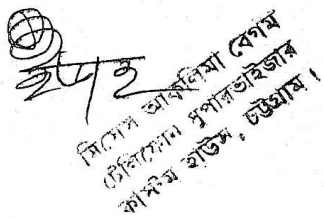 মিসেস আকলিমা বেগম
টেলিফোন সুপারভাইজার
কাস্টম হাউস, চট্টগ্রাম।